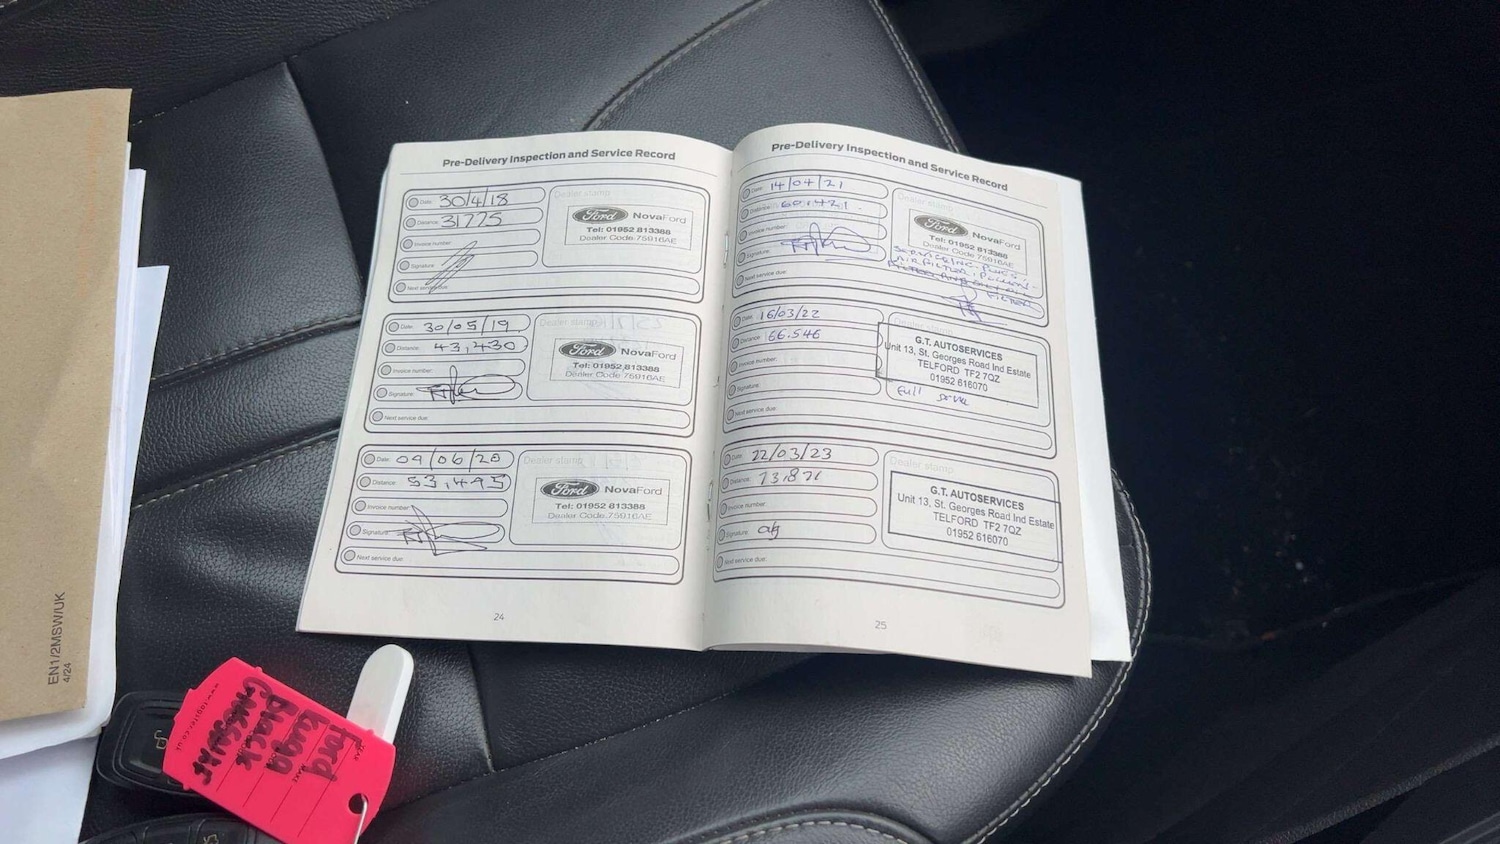 Pre-Delivery Inspection and Service Record
Date: 30/4/18
Distance: 31775
Invoice number:
Signature:
Next service due:
Dealer stamp
Ford NovaFord
Tel: 01952 813388
Dealer Code 75916AE
Date: 30/05/19
Distance: 43,430
Invoice number:
Signature:
Next service due:
Dealer stamp
Ford NovaFord
Tel: 01952 813388
Dealer Code 75916AE
Date: 09/06/20
Distance: 53,495
Invoice number:
Signature:
Next service due:
Dealer stamp
Ford NovaFord
Tel: 01952 813388
Dealer Code 75916AE
24
Pre-Delivery Inspection and Service Record
Date: 14/04/21
Distance: 60,421.
Invoice number:
Signature:
Next service due:
Dealer stamp
Ford NovaFord
Tel: 01952 813388
Dealer Code 75916AE
AIRFILTER
FILTER
Date: 16/03/22
Distance: 66.546
Invoice number:
Signature:
Next service due:
Dealer stamp
G.T. AUTOSERVICES
Unit 13, St. Georges Road Ind Estate
TELFORD TF2 7QZ
01952 616070
Full
Date: 22/03/23
Distance:
Invoice number:
Signature:
Next service due:
Dealer stamp
G.T. AUTOSERVICES
Unit 13, St. Georges Road Ind Estate
TELFORD TF2 7QZ
01952 616070
25
EN1/2MSW/UK
4/24
Ford
kuga
black